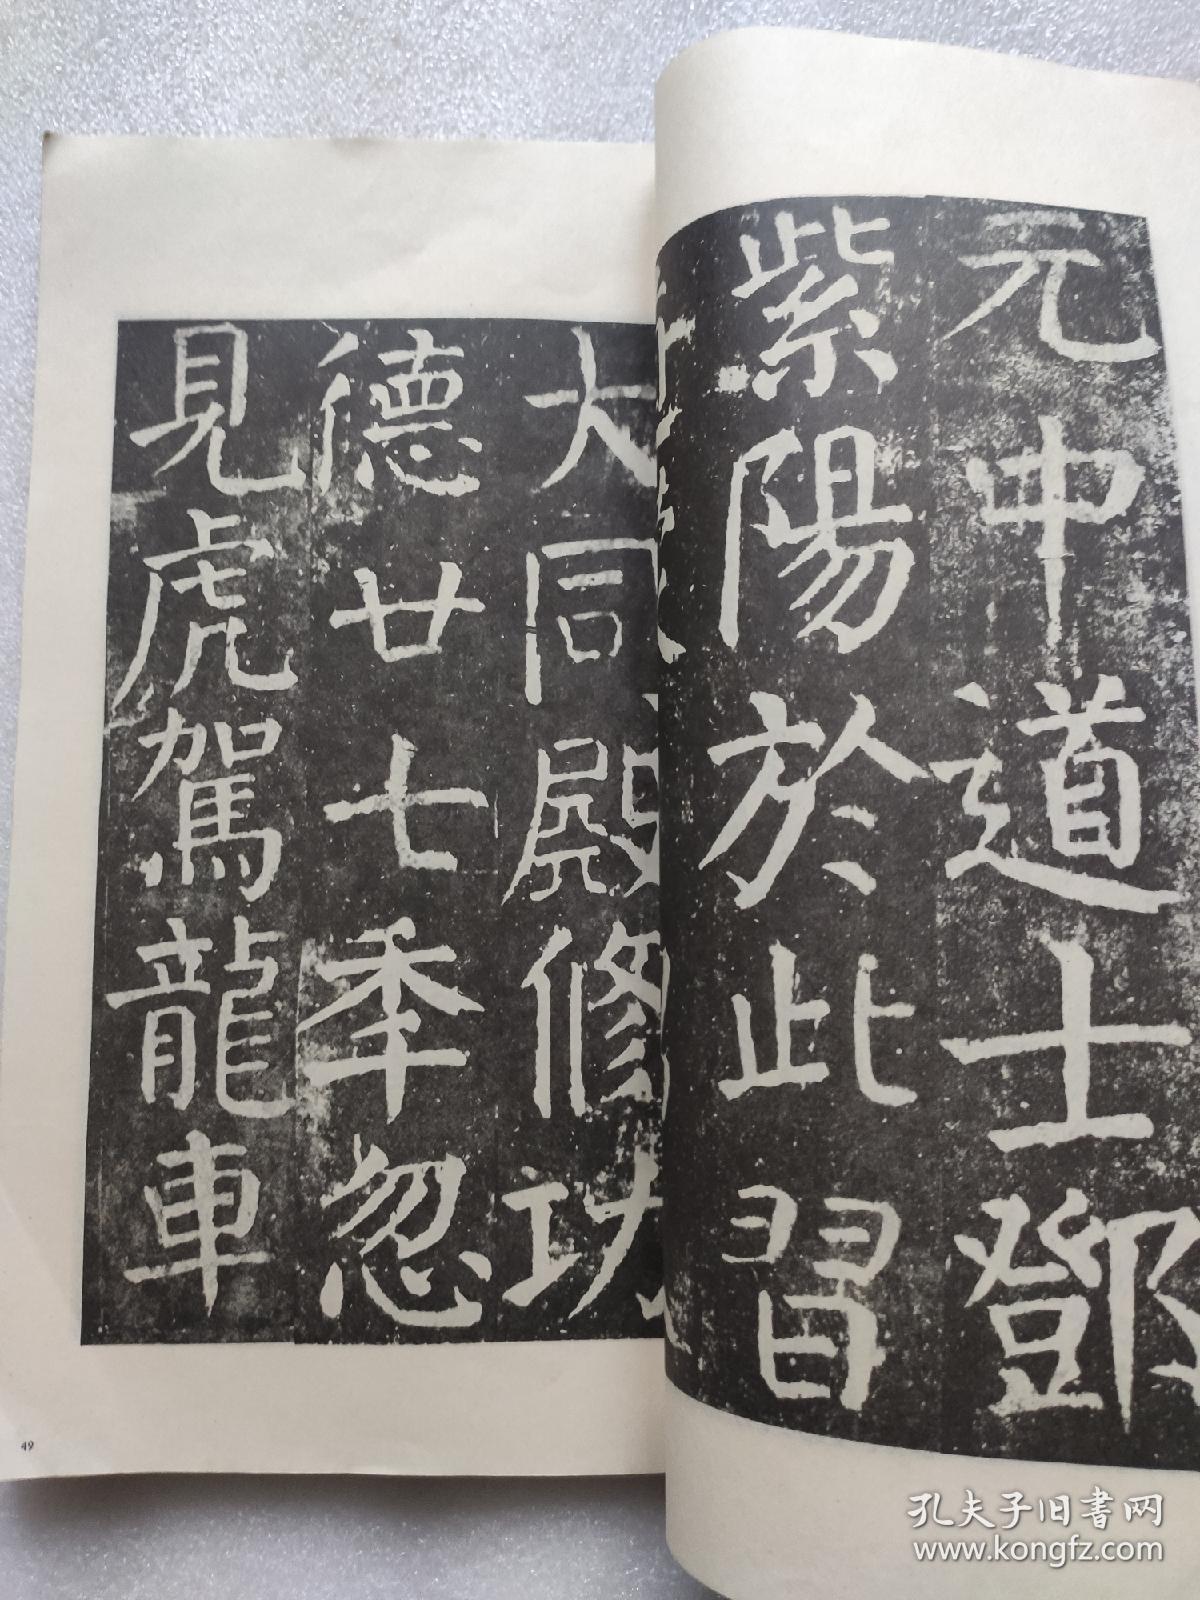 元中道士鄧
紫陽於此習
大同殿修功
德廿七季忽
見虎駕龍車
49
孔夫子旧書网
www.kongfz.com